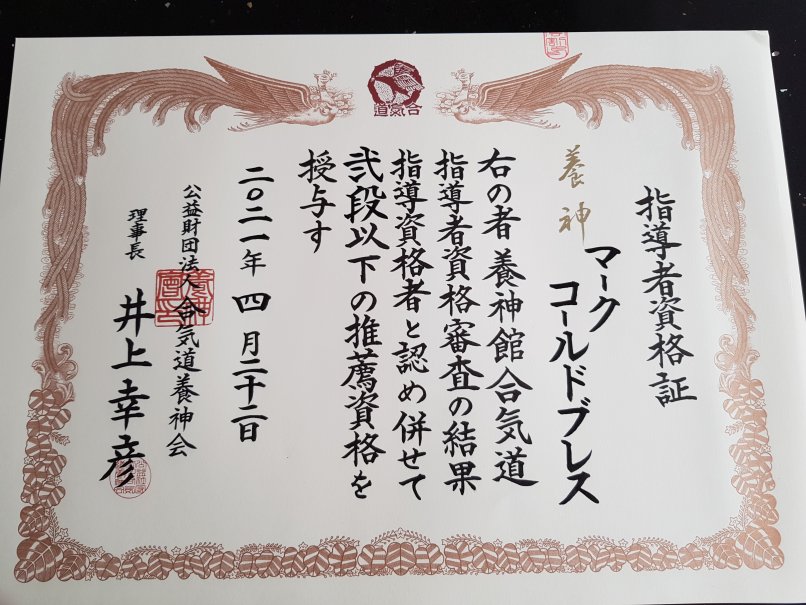 合氣道
指導者資格証
養神
マーク
コールドブレス
右の者 養神館合気道
指導者資格審査の結果
指導資格者と認め併せて
弐段以下の推薦資格を
授与す
二〇二一年 四月二十二日
公益財団法人 合気道養神会
理事長 井上幸彦